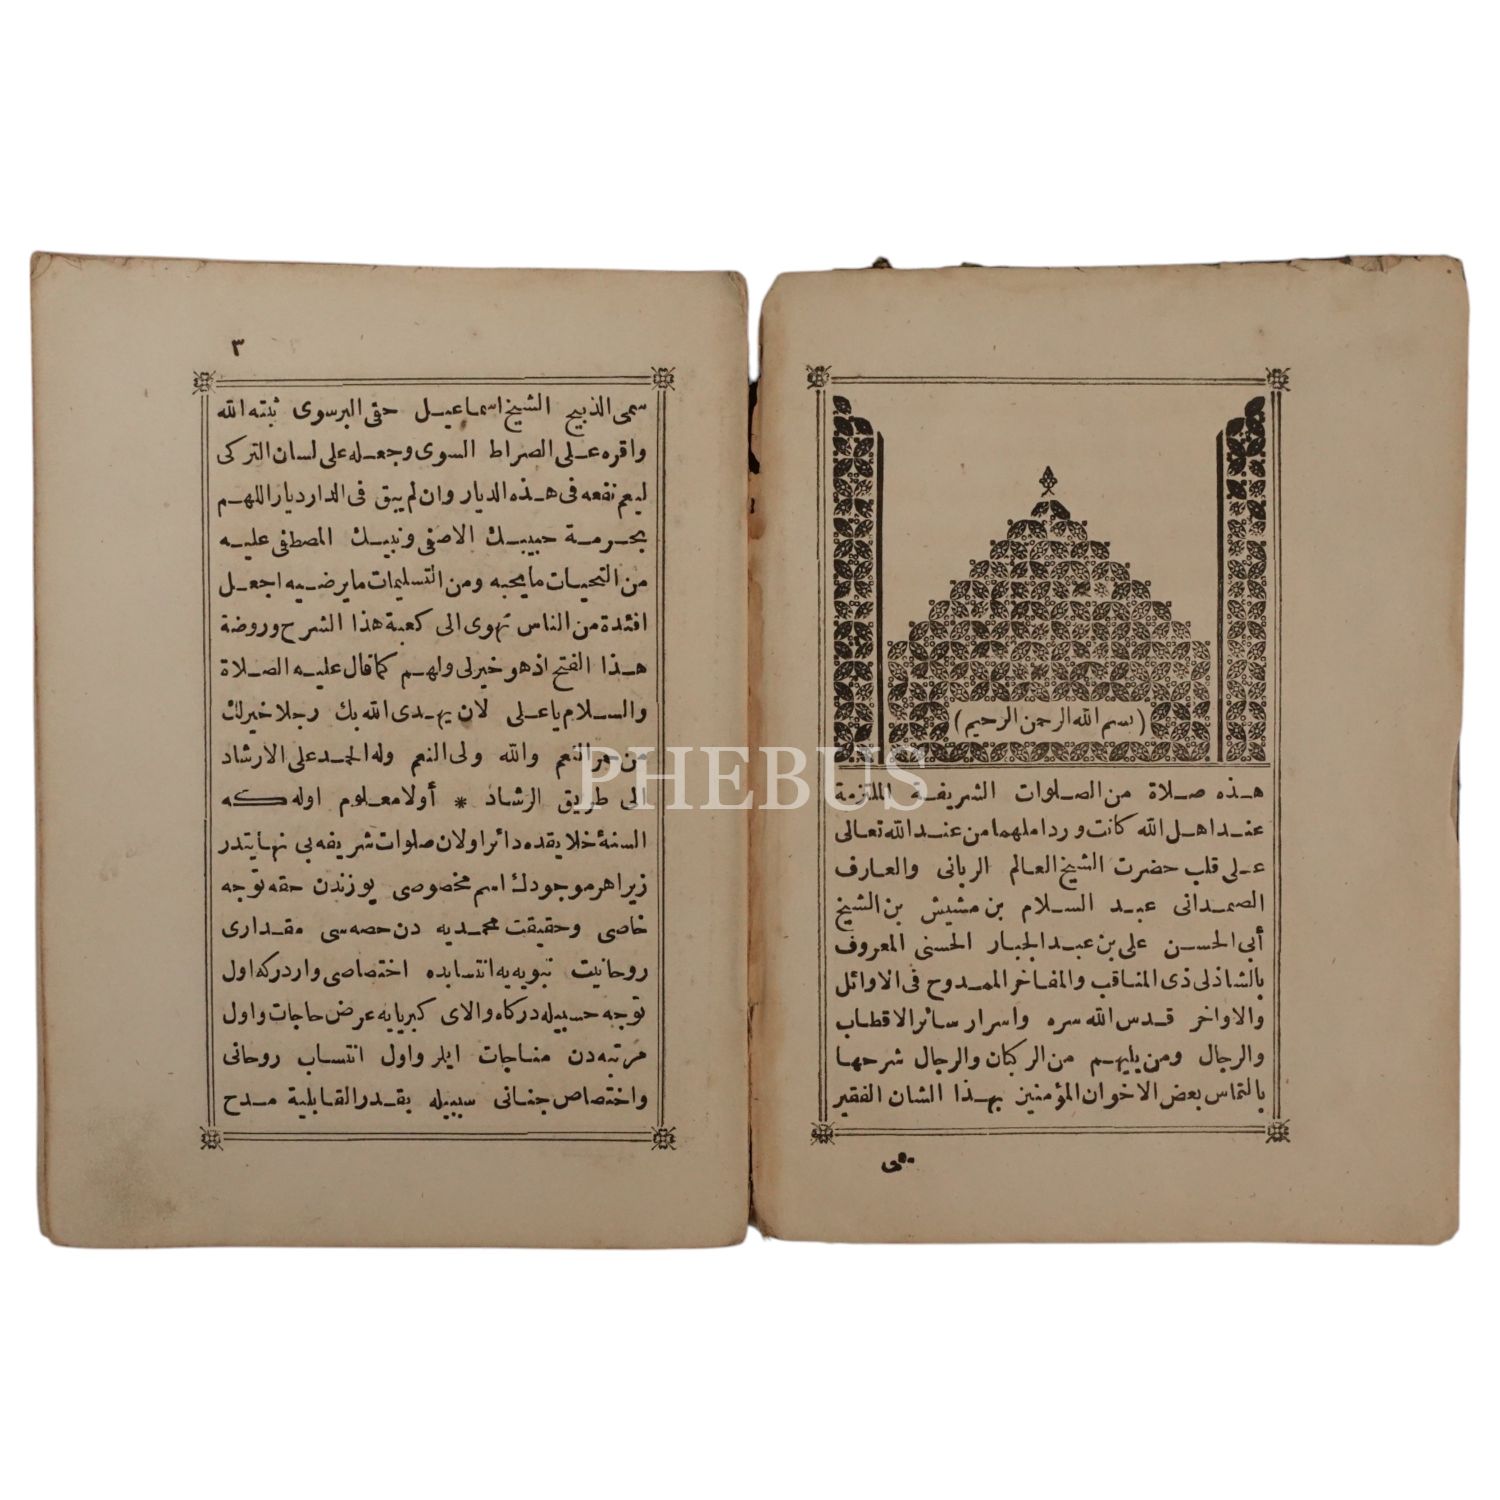 (بسم الله الرحمن الرحيم)
هذه صلاة من الصلوات الشريفه الملتزمة
عند اهل الله كانت ورداملهما من عند الله تعالى
على قلب حضرت الشيخ العالم الربانى والعارف
الصمدانى عبد السلام بن مشيش بن الشيخ
أبى الحسن على بن عبد الجبار الحسنى المعروف
بالشاذلى ذى المناقب والمفاخر الممدوح فى الاوائل
والاواخر قدس الله سره واسرار سائر الاقطاب
والرجال ومن يليهم من الركبان والرجال شرحها
بالتماس بعض الاخوان المؤمنين بهذا الشان الفقير
سمى
٣
سمى الذبيح الشيخ اسماعيل حقى البرسوى ثبته الله
واقره على الصراط السوى وجعله على لسان التركى
ليعم نفعه فى هذه الديار وان لم يبق فى الدار ديار اللهم
بحرمة حبيبك الاصفى ونبيك المصطفى عليه
من التحيات ما يحبه ومن التسليمات ما يرضيه اجعل
افئدة من الناس تهوى الى كعبة هذا الشرح وروضة
هذا الفتح اذ هو خير لى ولهم كما قال عليه الصلاة
والسلام يا على لان يهدى الله بك رجلا خير لك
من حمر النعم والله ولى النعم وله الحمد على الارشاد
الى طريق الرشاد * أولا معلوم اوله كه
السنهٔ خلايقده دائر اولان صلوات شريفه بى نهايتدر
زيرا هر موجودك اسم مخصوصى يوزندن حقه توجه
خاصى وحقيقت محمديه دن حصه سى مقدارى
روحانيت نبويه يه انتسابده اختصاصى واردر كه اول
توجه حسبيله دركاه والاى كبريايه عرض حاجات واول
مرتبه دن مناجات ايلر واول انتساب روحانى
واختصاص جنانى سببيله بقدر القابلية مدح
PHEBUS